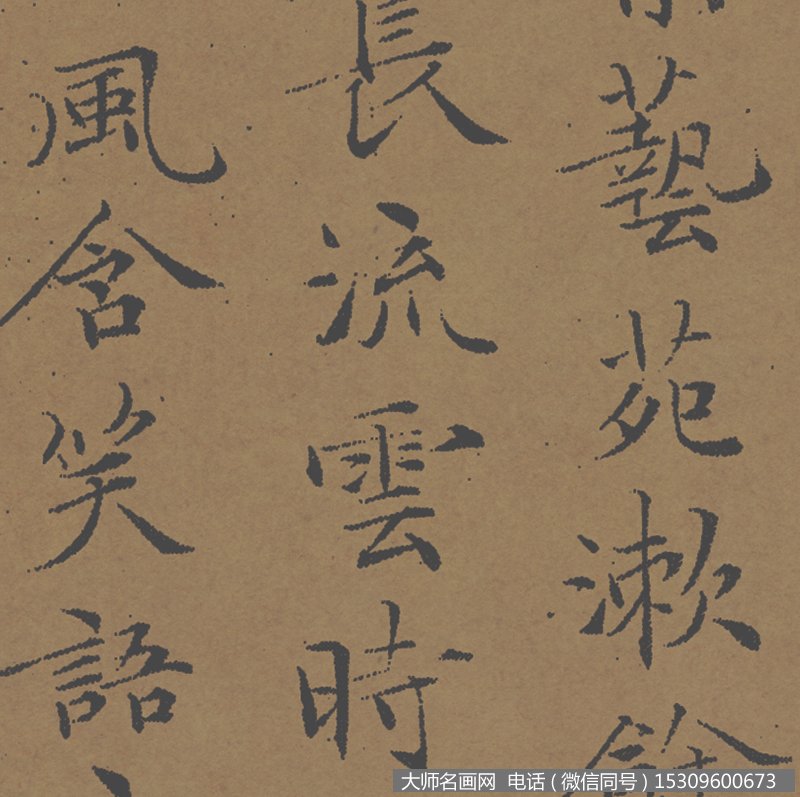 藝苑漱
長流雲時
風含笑語
大师名画网 电话(微信同号)15309600673